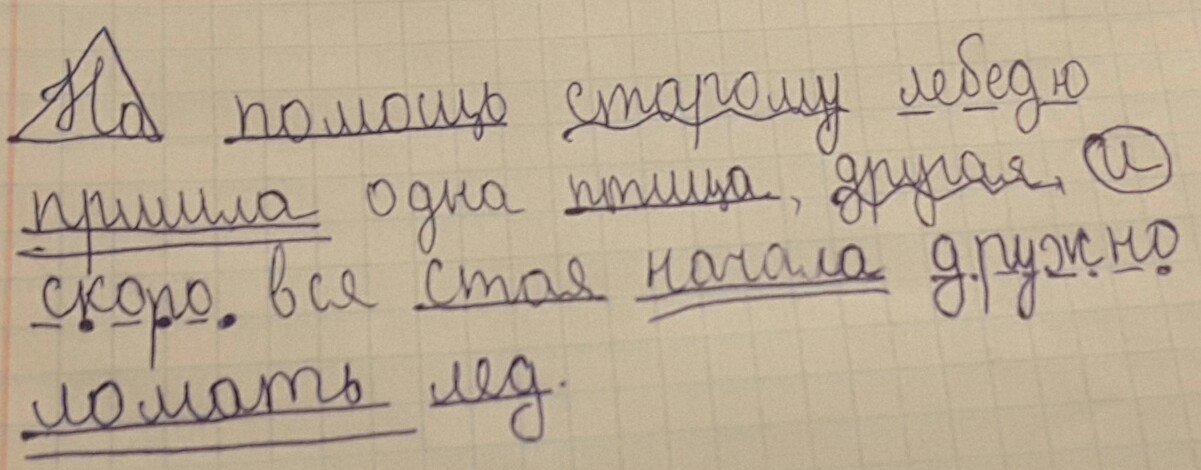 На помощь старому лебедю
пришла одна птица, другая, и
скоро вся стая начала дружно
ломать лед.